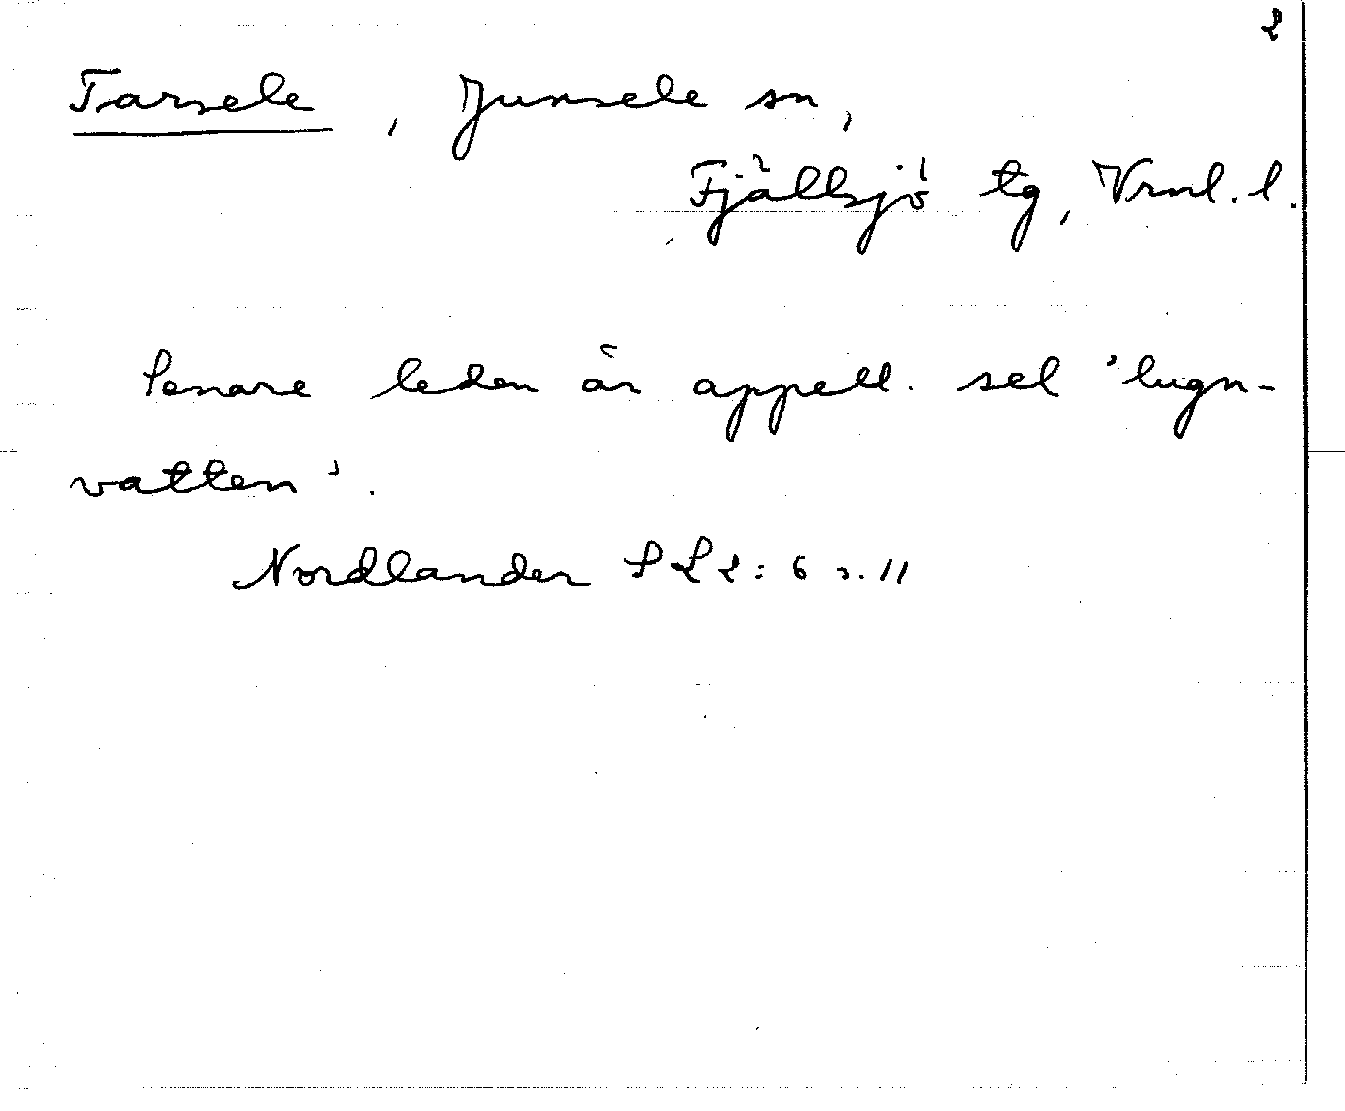 2
Tarsele, Junsele sn,
Fjällsjö tg, Vrnl. l.
Senare leden är appell. sel 'lugn-
vatten'.
Nordlander S L 2: 6 s. 11